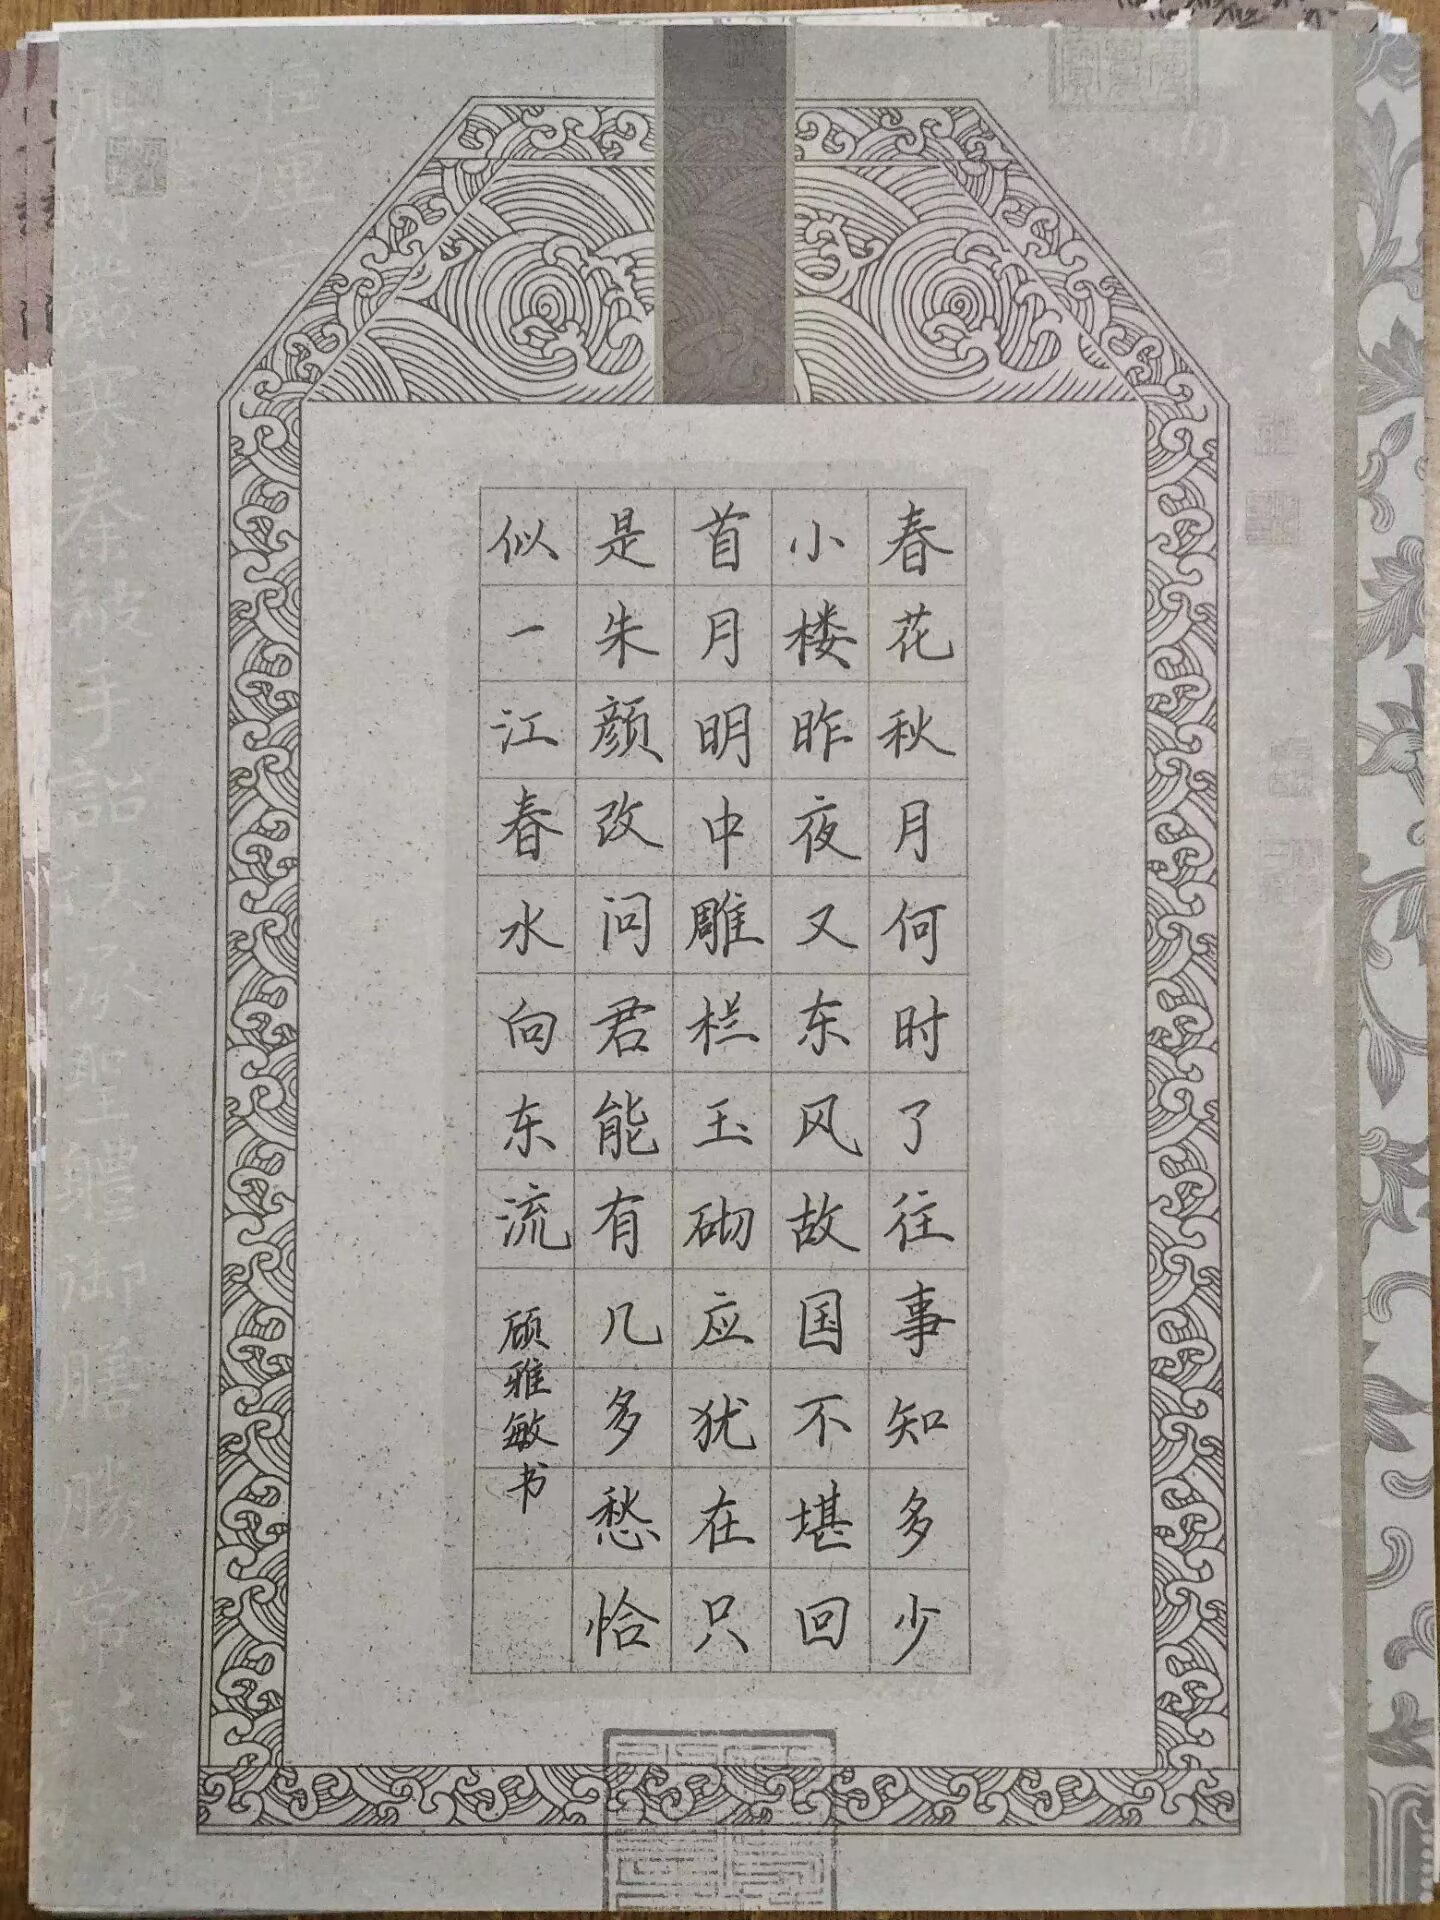 春花秋月何时了往事知多少
小楼昨夜又东风故国不堪回
首月明中雕栏玉砌应犹在只
是朱颜改问君能有几多愁恰
似一江春水向东流
顾雅敏书